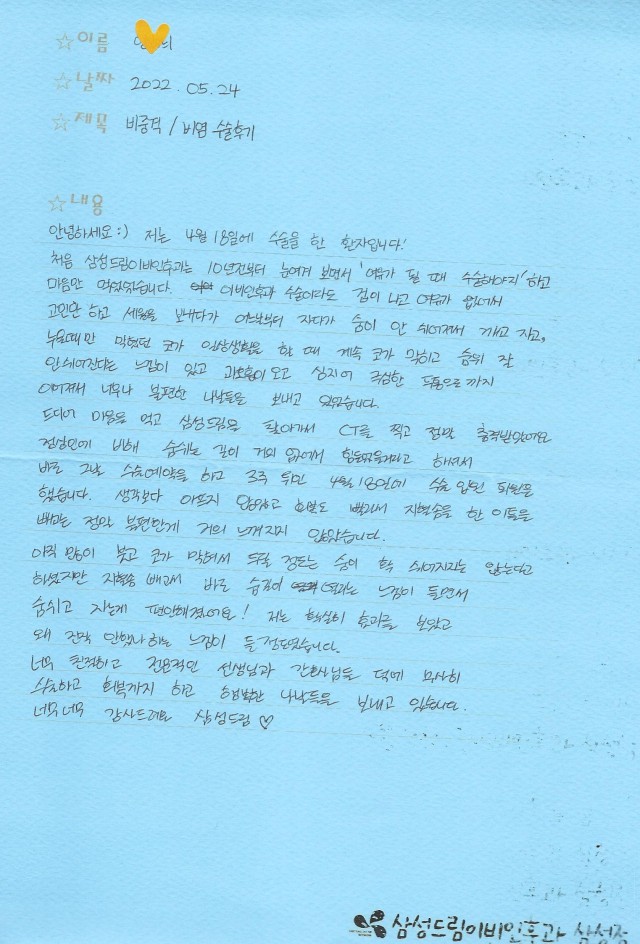 ☆이름
☆날짜 2022.05.24
☆제목 비중격 / 비염 수술후기
☆내용
안녕하세요:) 저는 4월 18일에 수술을 한 환자입니다!
처음 삼성드림이비인후과는 10년전부터 눈여겨 보면서 '여유가 될 때 수술해야지' 하고
마음만 먹었었습니다. 이비인후과 수술이라도 겁이 나고 여유가 없어서
고민만 하고 세월을 보내다가 자다가 숨이 안 쉬어져서 깨고 자고,
누울때만 막혔던 코가 일상생활을 할 때 계속 코가 막히고 숨쉬 잘
안쉬어진다는 느낌이 있고 과호흡이 오고 심지어 극심한 두통으로까지
이어져서 너무나 불편한 나날들을 보내고 있었습니다.
드디어 마음을 먹고 삼성드림을 찾아가서 CT를 찍고 정말 충격받았어요
정상인에 비해 숨쉬는 길이 거의 없어서 힘들었을거라고 하셔서
바로 그날 수술예약을 하고 3주 뒤인 4월 18일에 수술 입원 퇴원을
했습니다. 생각보다 아프지 않았고 회복도 빨라서 지혈솜을 한 이틀을
빼고는 정말 불편한게 거의 느껴지지 않았습니다.
아직 많이 붓고 코가 막혀서 뚫릴 정도는 숨이 확 쉬어지지는 않는다고
하셨지만 지혈솜 빼고서 바로 숨길이 느낌이 들면서
숨쉬고 자는게 편안해졌어요! 저는 확실히 효과를 보았고
왜 진작 안했나 하는 느낌이 들 정도였습니다.
너무 친절하고 전문적인 선생님과 간호사님들 덕에 무사히
수술하고 회복까지 하고 행복한 나날들을 보내고 있습니다.
너무너무 감사드려요 삼성드림♡
삼성드림이비인후과 삼성점